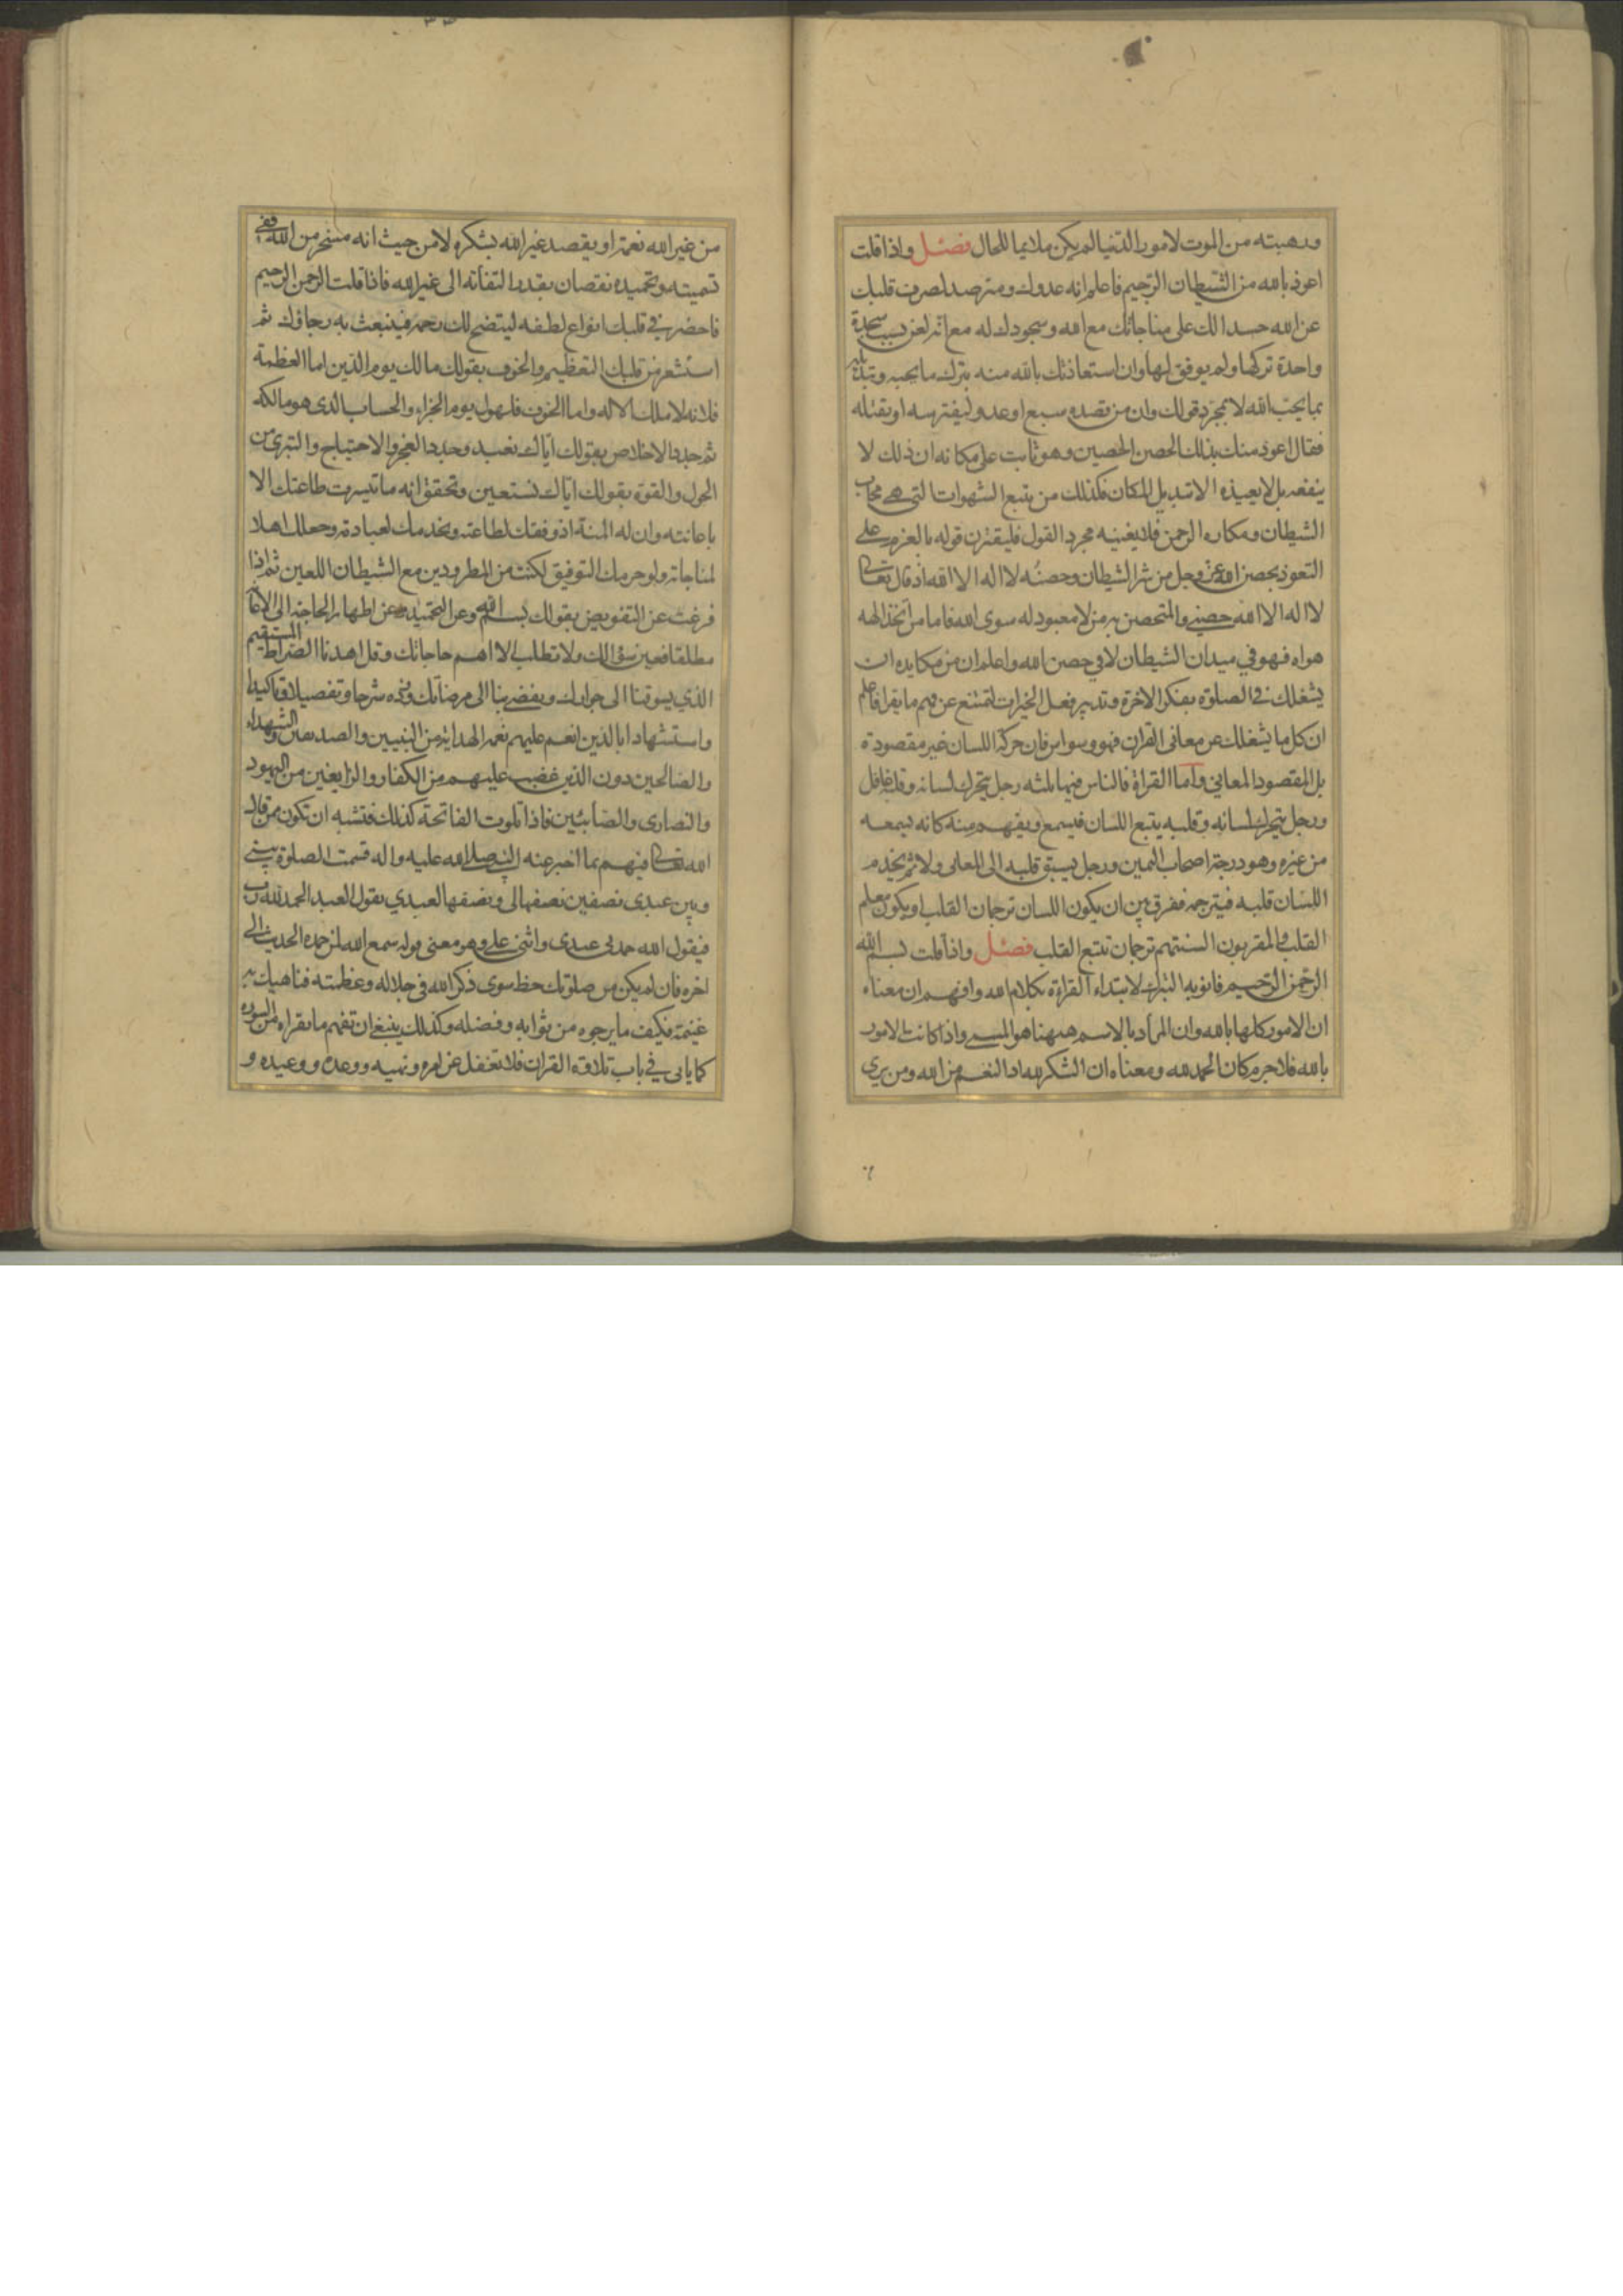 ورهبته من الموت لامور الدنيا لم يكن ملايما للحال فصل واذا قلت
اعوذ بالله من الشيطان الرجيم فاعلم انه عدوك ومترصد لصرف قلبك
عن الله حسدا لك على مناجاتك مع الله وسجودك له مع انه لعن بسبب سجدة
واحدة تركها ولم يوفق لها وان استعاذتك بالله منه بترك ما يحبه وتبديله
بما يحب الله لا بمجرد قولك وان من قصده سبع او عدو ليفترسه او يقتله
فقال اعوذ منك بذلك الحصن الحصين وهو ثابت على مكانه ان ذلك لا
ينفعه بل لا يعيذه الا تبديل المكان فكذلك من يتبع الشهوات التي هي محاب
الشيطان ومكاره الرحمن فلا يغنيه مجرد القول فليقترن قوله بالعزم على
التعوذ بحصن الله عز وجل من شر الشيطان وحصنه لا اله الا الله اذ قال تعالى
لا اله الا الله حصني والمتحصن به من لا معبود له سوى الله فاما من اتخذ الهه
هواه فهو في ميدان الشيطان لا في حصن الله واعلم ان من مكايده ان
يشغلك في الصلوة بفكر الاخرة وتدبير فعل الخيرات لتمتنع عن فهم ما يقرا فاعلم
ان كل ما يشغلك عن معاني القران فهو وسواس فان حركة اللسان غير مقصودة
بل المقصود المعاني واما القراة فالناس فيها ثلثه رجل يتحرك لسانه وقلبه غافل
ورجل يتحرك لسانه وقلبه يتبع اللسان فيسمع ويفهم منه كانه يسمعه
من غيره وهو درجة اصحاب اليمين ورجل يسبق قلبه الى المعاني ولا ثم يخدم
اللسان قلبه فيترجمه ففرق بين ان يكون اللسان ترجمان القلب او يكون معلم
القلب والمقربون السنتهم ترجمان تتبع القلب فصل واذا قلت بسم الله
الرحمن الرحيم فانو به التبرك لابتداء القراءة بكلام الله وافهم ان معناه
ان الامور كلها بالله وان المراد بالاسم ههنا هو المسمى واذا كانت الامور
بالله فلا جرم كان الحمد لله ومعناه ان الشكر لله اذ النعم من الله ومن يرى
من غير الله نعمة او يقصد غير الله بشكره لا من حيث انه مسخر من الله ففي
تسميته وتحميده نقصان بقدر التفاته الى غير الله فاذا قلت الرحمن الرحيم
فاحضر في قلبك انواع لطفه ليتضح لك رحمته فينبعث به رجاؤك ثم
استشعر من قلبك التعظيم والخوف بقولك مالك يوم الدين اما العظمة
فلانه لا ملك الا له واما الخوف فلهول يوم الجزاء والحساب الذي هو مالكه
ثم جدد الاخلاص بقولك اياك نعبد وجدد العجز والاحتياج والتبري من
الحول والقوة بقولك اياك نستعين وتحقق انه ما تيسرت طاعتك الا
باعانته وان له المنة اذ وفقك لطاعته وبخدمك لعبادته وجعلك اهلا
لمناجاته ولو حرمك التوفيق لكنت من المطرودين مع الشيطان اللعين ثم اذا
فرغت عن التفويض بقولك بسم الله وعن التحميد وعن اظهار الحاجة الى الاعانة
مطلقا فعين سؤالك ولا تطلب الا اهم حاجاتك وقل اهدنا الصراط المستقيم
الذي يسوقنا الى جوارك ويفضي بنا الى مرضاتك وزده شرحا وتفصيلا وتاكيدا
واستشهادا بالذين انعم عليهم نعمة الهداية من النبيين والصديقين والشهداء
والصالحين دون الذين غضب عليهم من الكفار والزايغين من اليهود
والنصارى والصابئين فاذا تلوت الفاتحة كذلك فتشبه ان تكون ممن قال
الله تعالى فيهم بما اخبر عنه النبي صلى الله عليه واله قسمت الصلوة بيني
وبين عبدي نصفين نصفها لي ونصفها لعبدي يقول العبد الحمد لله رب
فيقول الله حمدني عبدي واثنى علي وهو معنى قوله سمع الله لمن حمده الحديث الى
اخره فان لم يكن من صلوتك حظ سوى ذكر الله في جلاله وعظمته فناهيك به
غنيمة فكيف ما يرجوه من ثوابه وفضله وكذلك ينبغي ان تفهم ما تقراه من السوره
كما ياتي في باب تلاوة القران فلا تغفل عن امره ونهيه ووعده ووعيده و